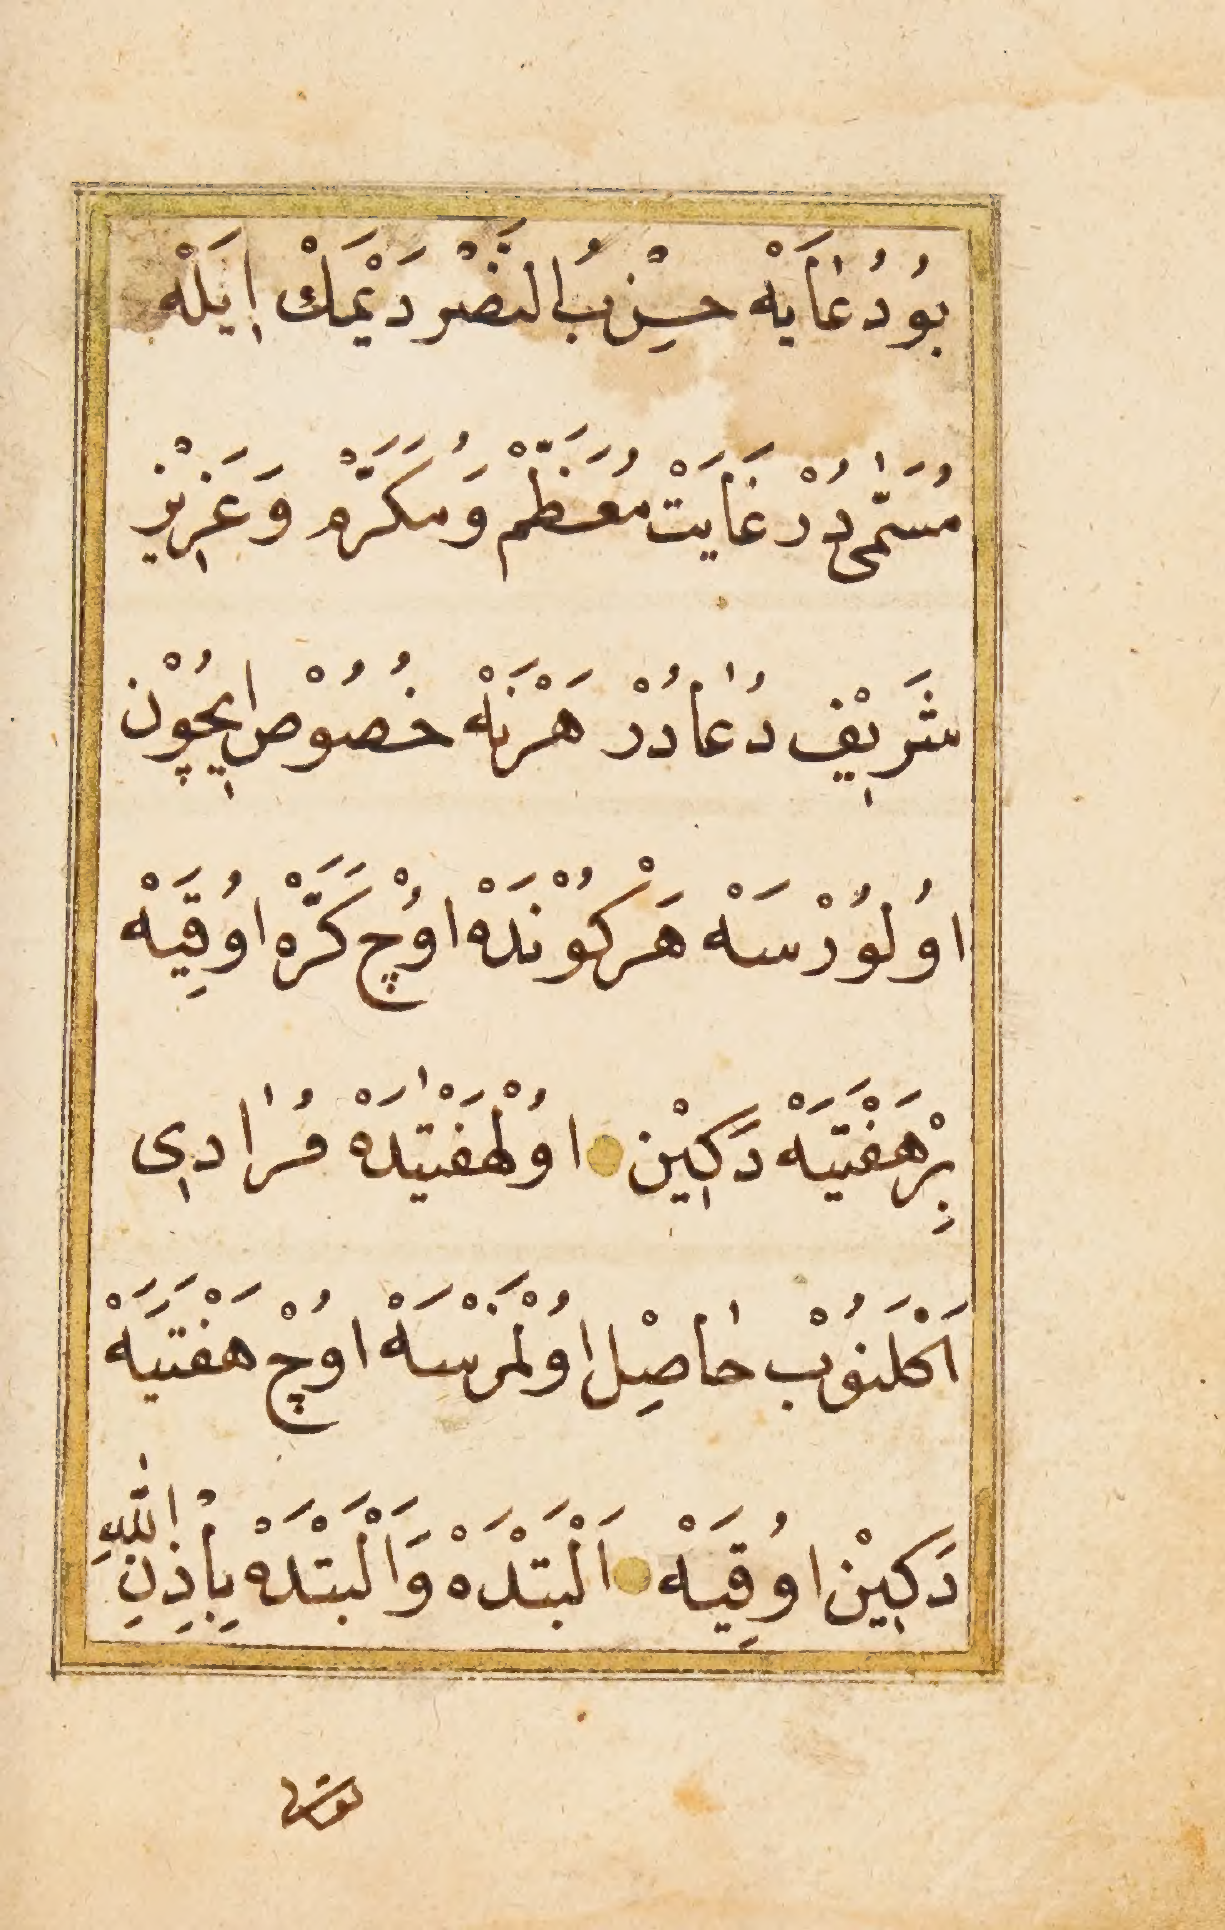 بُودُعَايَهْ حِزْبُ النَّصْر دَيْمَكْ اِيلَهْ
مُسَمّٰى دُرْ غَايَتْ مُعَظَّمْ وَمُكَرَّمْ وَعَزِيزْ
شَرِيْفْ دُعَادُرْ هَرْنَهْ خُصُوصْ اِيچُوْن
اوُلوُرْسَهْ هَرْ كُوْنْدَهْ اوُچْ كَرَّهْ اوُقِيَهْ
بِرْهَفْتَيَهْ دَكِيْنْ اوُلْهَفْتَيْدَهْ مُرَادِى
اَكْلَنوُبْ حَاصِلْ اوُلْمَزْسَهْ اوُچْ هَفْتَيَهْ
دَكِيْنْ اوُقِيَهْ اَلْبَتْدَهْ وَاَلْبَتْدَهْ بِاِذْنِ اللّٰهِ